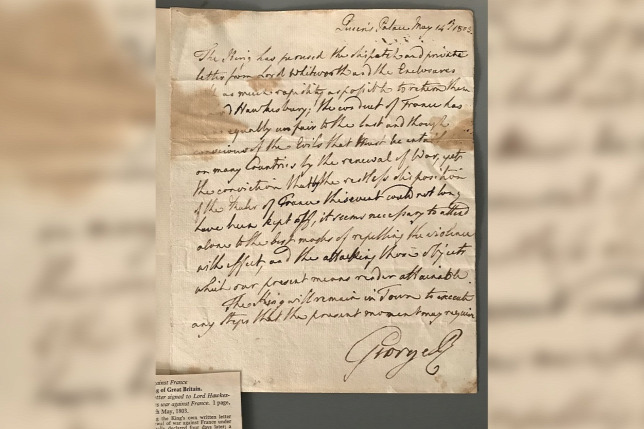 Queen's Palace May 14th 1803
The King has perused the dispatch and private
letter from Lord Whitworth and the Enclosures
as much rapidity as possible to return them
Hawkesbury; the conduct of France has
equally unfair to the last and though
conscious of the Evils that must be entail
on many Countries by the renewal of War, yet
the conviction that the restless disposition
of the ruler of France this event could not long
have been kept off, it seems necessary to attend
alone to the best modes of repelling the violence
with effect, and the attacking those objects
which our present means render attainable.
The King will remain in Town to execute
any Steps that the present moment may require
George R
against France
g of Great Britain.
tter signed to Lord Hawkes-
s war against France. 1 page,
h May, 1803.
the King's own written letter
al of war against France under
declared four days later; a